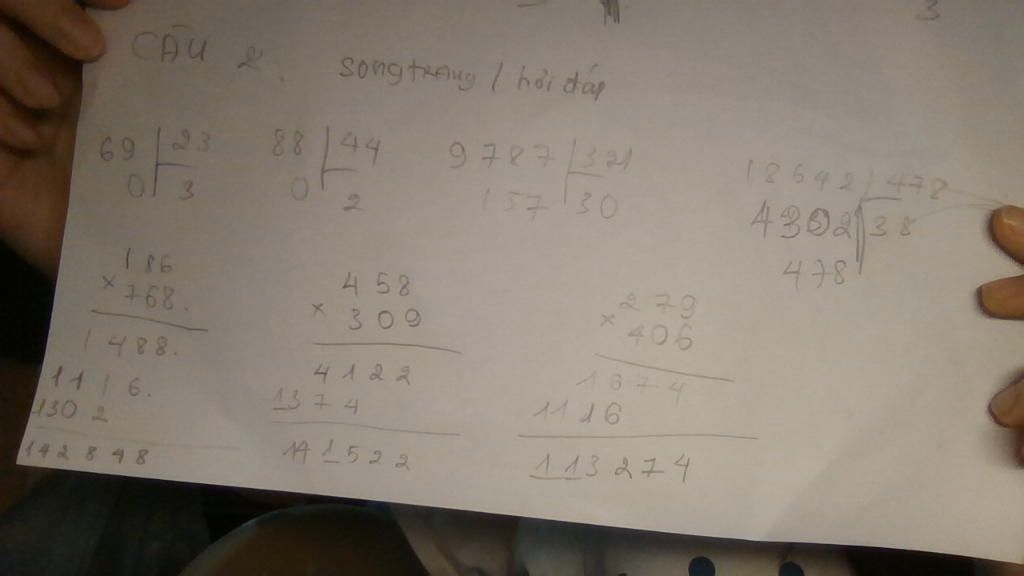 3
CÂU 2. Songtrang / hỏi đáp
69 | 23
0 | 3
88 | 44
0 | 2
9787 | 321
157 | 30
18642 | 478
4302 | 38
478
186
× 768.
1488.
1116.
1302
142848
458
× 309
4122
1374
141522
279
× 406
1674
1116
113274